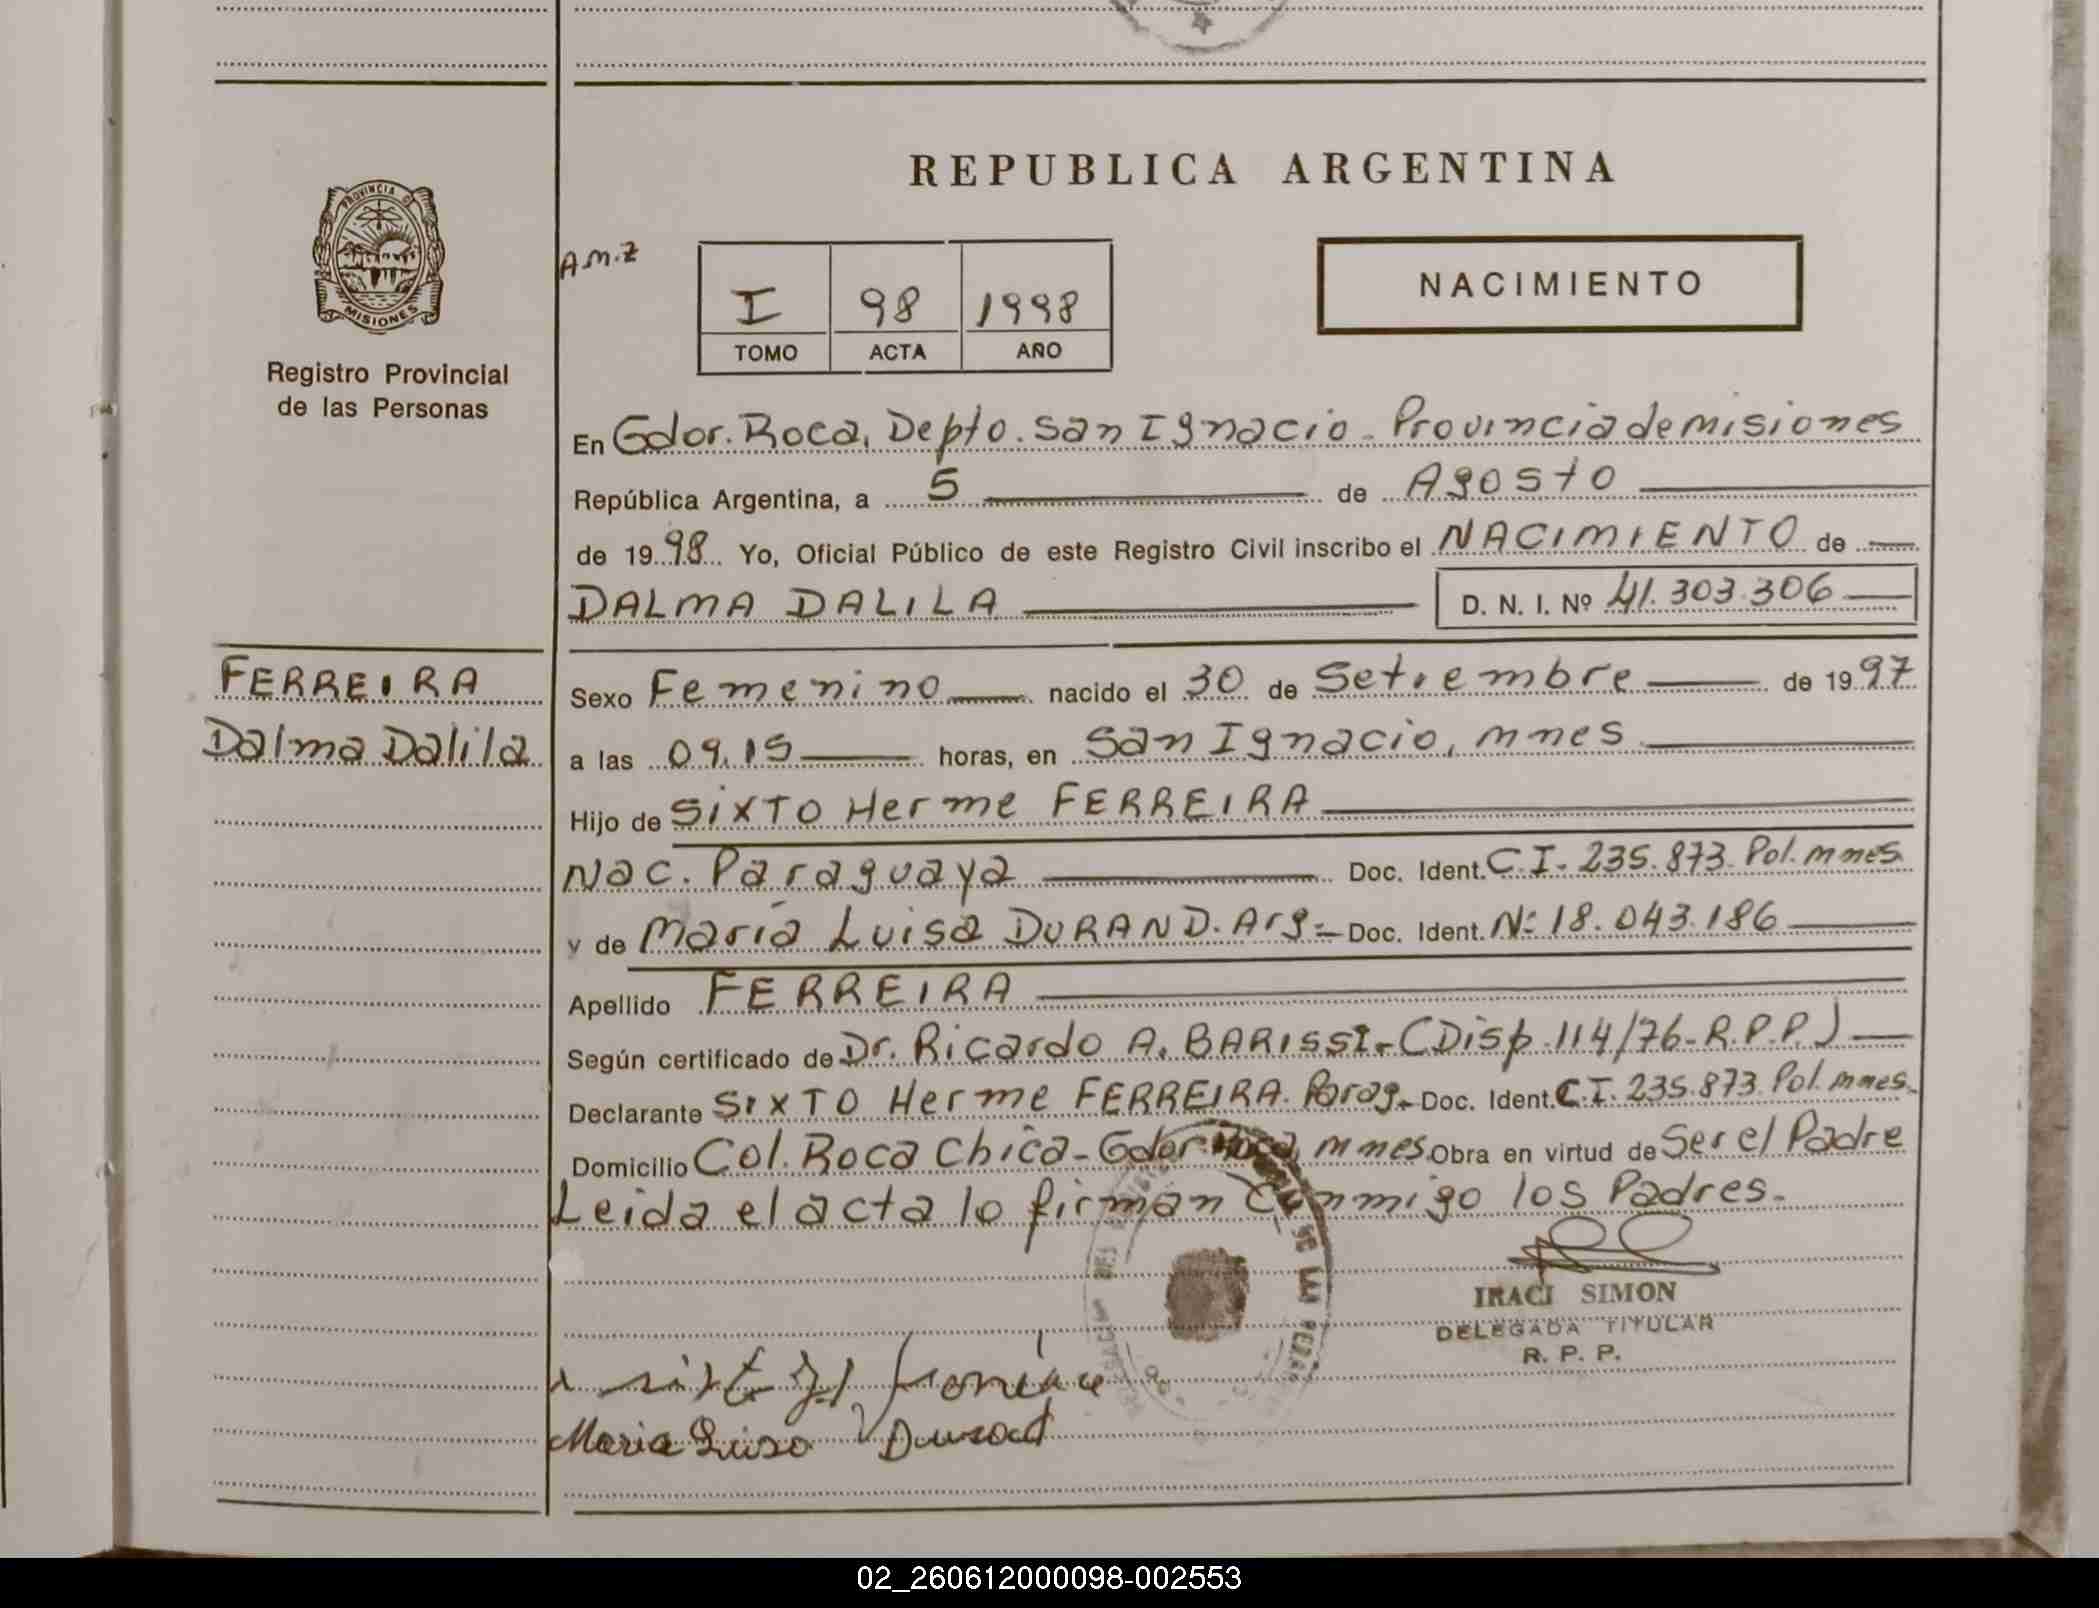 REPUBLICA ARGENTINA
PROVINCIA DE
MISIONES
Registro Provincial
de las Personas
A.M.Z
I 98 1998
TOMO ACTA AÑO
NACIMIENTO
En Gdor. Roca, Depto. San Ignacio - Provincia de misiones
República Argentina, a 5 de Agosto
de 1998 Yo, Oficial Público de este Registro Civil inscribo el NACIMIENTO de
DALMA DALILA D. N. I. Nº 41.303.306
FERREIRA
Dalma Dalila
Sexo Femenino nacido el 30 de Setiembre de 1997
a las 09.15 horas, en San Ignacio, mnes
Hijo de SIXTO Herme FERREIRA
Nac. Paraguaya Doc. Ident. C.I. 235.873 Pol. mnes
y de María Luisa DURAND. Arg.- Doc. Ident. Nº 18.043.186
Apellido FERREIRA
Según certificado de Dr. Ricardo A. BARISSI - (Disp. 114/76-R.P.P.)
Declarante SIXTO Herme FERREIRA. Parag. Doc. Ident. C.I. 235.873 Pol. mnes.
Domicilio Col. Roca Chica - Gdor. Roca, mnes Obra en virtud de Ser el Padre
Leida el acta lo firman conmigo los Padres.
IRACI SIMON
DELEGADA TITULAR
R. P. P.
Maria Luisa Durand
02_260612000098-002553